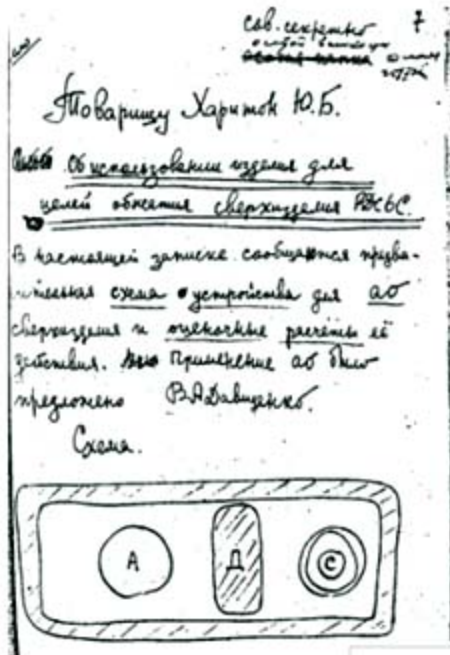 сов. секретно 7
особой важности
Товарищу Харитон Ю.Б.
Об использовании изделия для
целей обжатия сверхизделия РДС6С.
В настоящей записке сообщаются предва-
рительная схема устройства для АО
сверхизделия и оценочные расчёты её
действия. Применение АО было
предложено В.А.Давиденко.
Схема.
А Д С